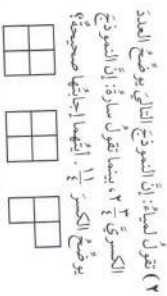 ٢) تقولُ لمياءُ: إنَّ النموذجَ التاليَ يوضِّحُ العددَ
الكسريَّ ٢ ٣/٤، بينما تقولُ سارةُ: إنَّ النموذجَ
يوضِّحُ الكسرَ ١١/٤. أيّتُهما إجابتُها صحيحةٌ؟